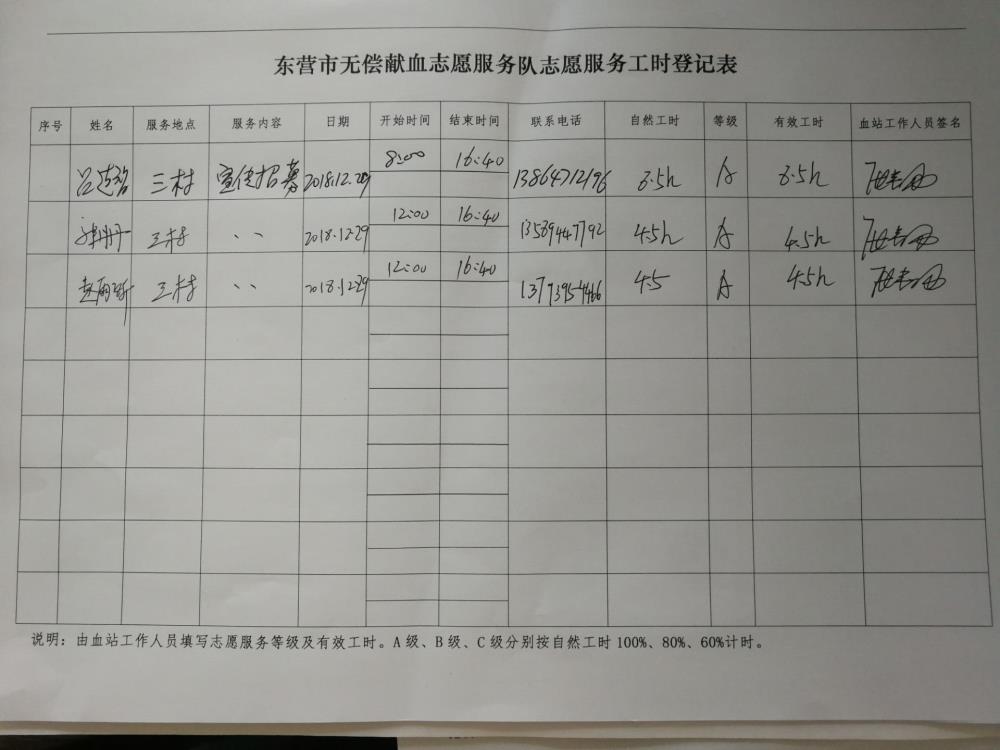 东营市无偿献血志愿服务队志愿服务工时登记表
序号 姓名 服务地点 服务内容 日期 开始时间 结束时间 联系电话 自然工时 等级 有效工时 血站工作人员签名
三村 宣传招募 2018.12.29 8:00 16:40 13864712196 8.5h A 8.5h
三村 、、 2018.12.29 12:00 16:40 13589447792 4.5h A 4.5h
赵雨昕 三村 、、 2018.12.29 12:00 16:40 13793954466 4.5 A 4.5h
说明：由血站工作人员填写志愿服务等级及有效工时。A级、B级、C级分别按自然工时100%、80%、60%计时。